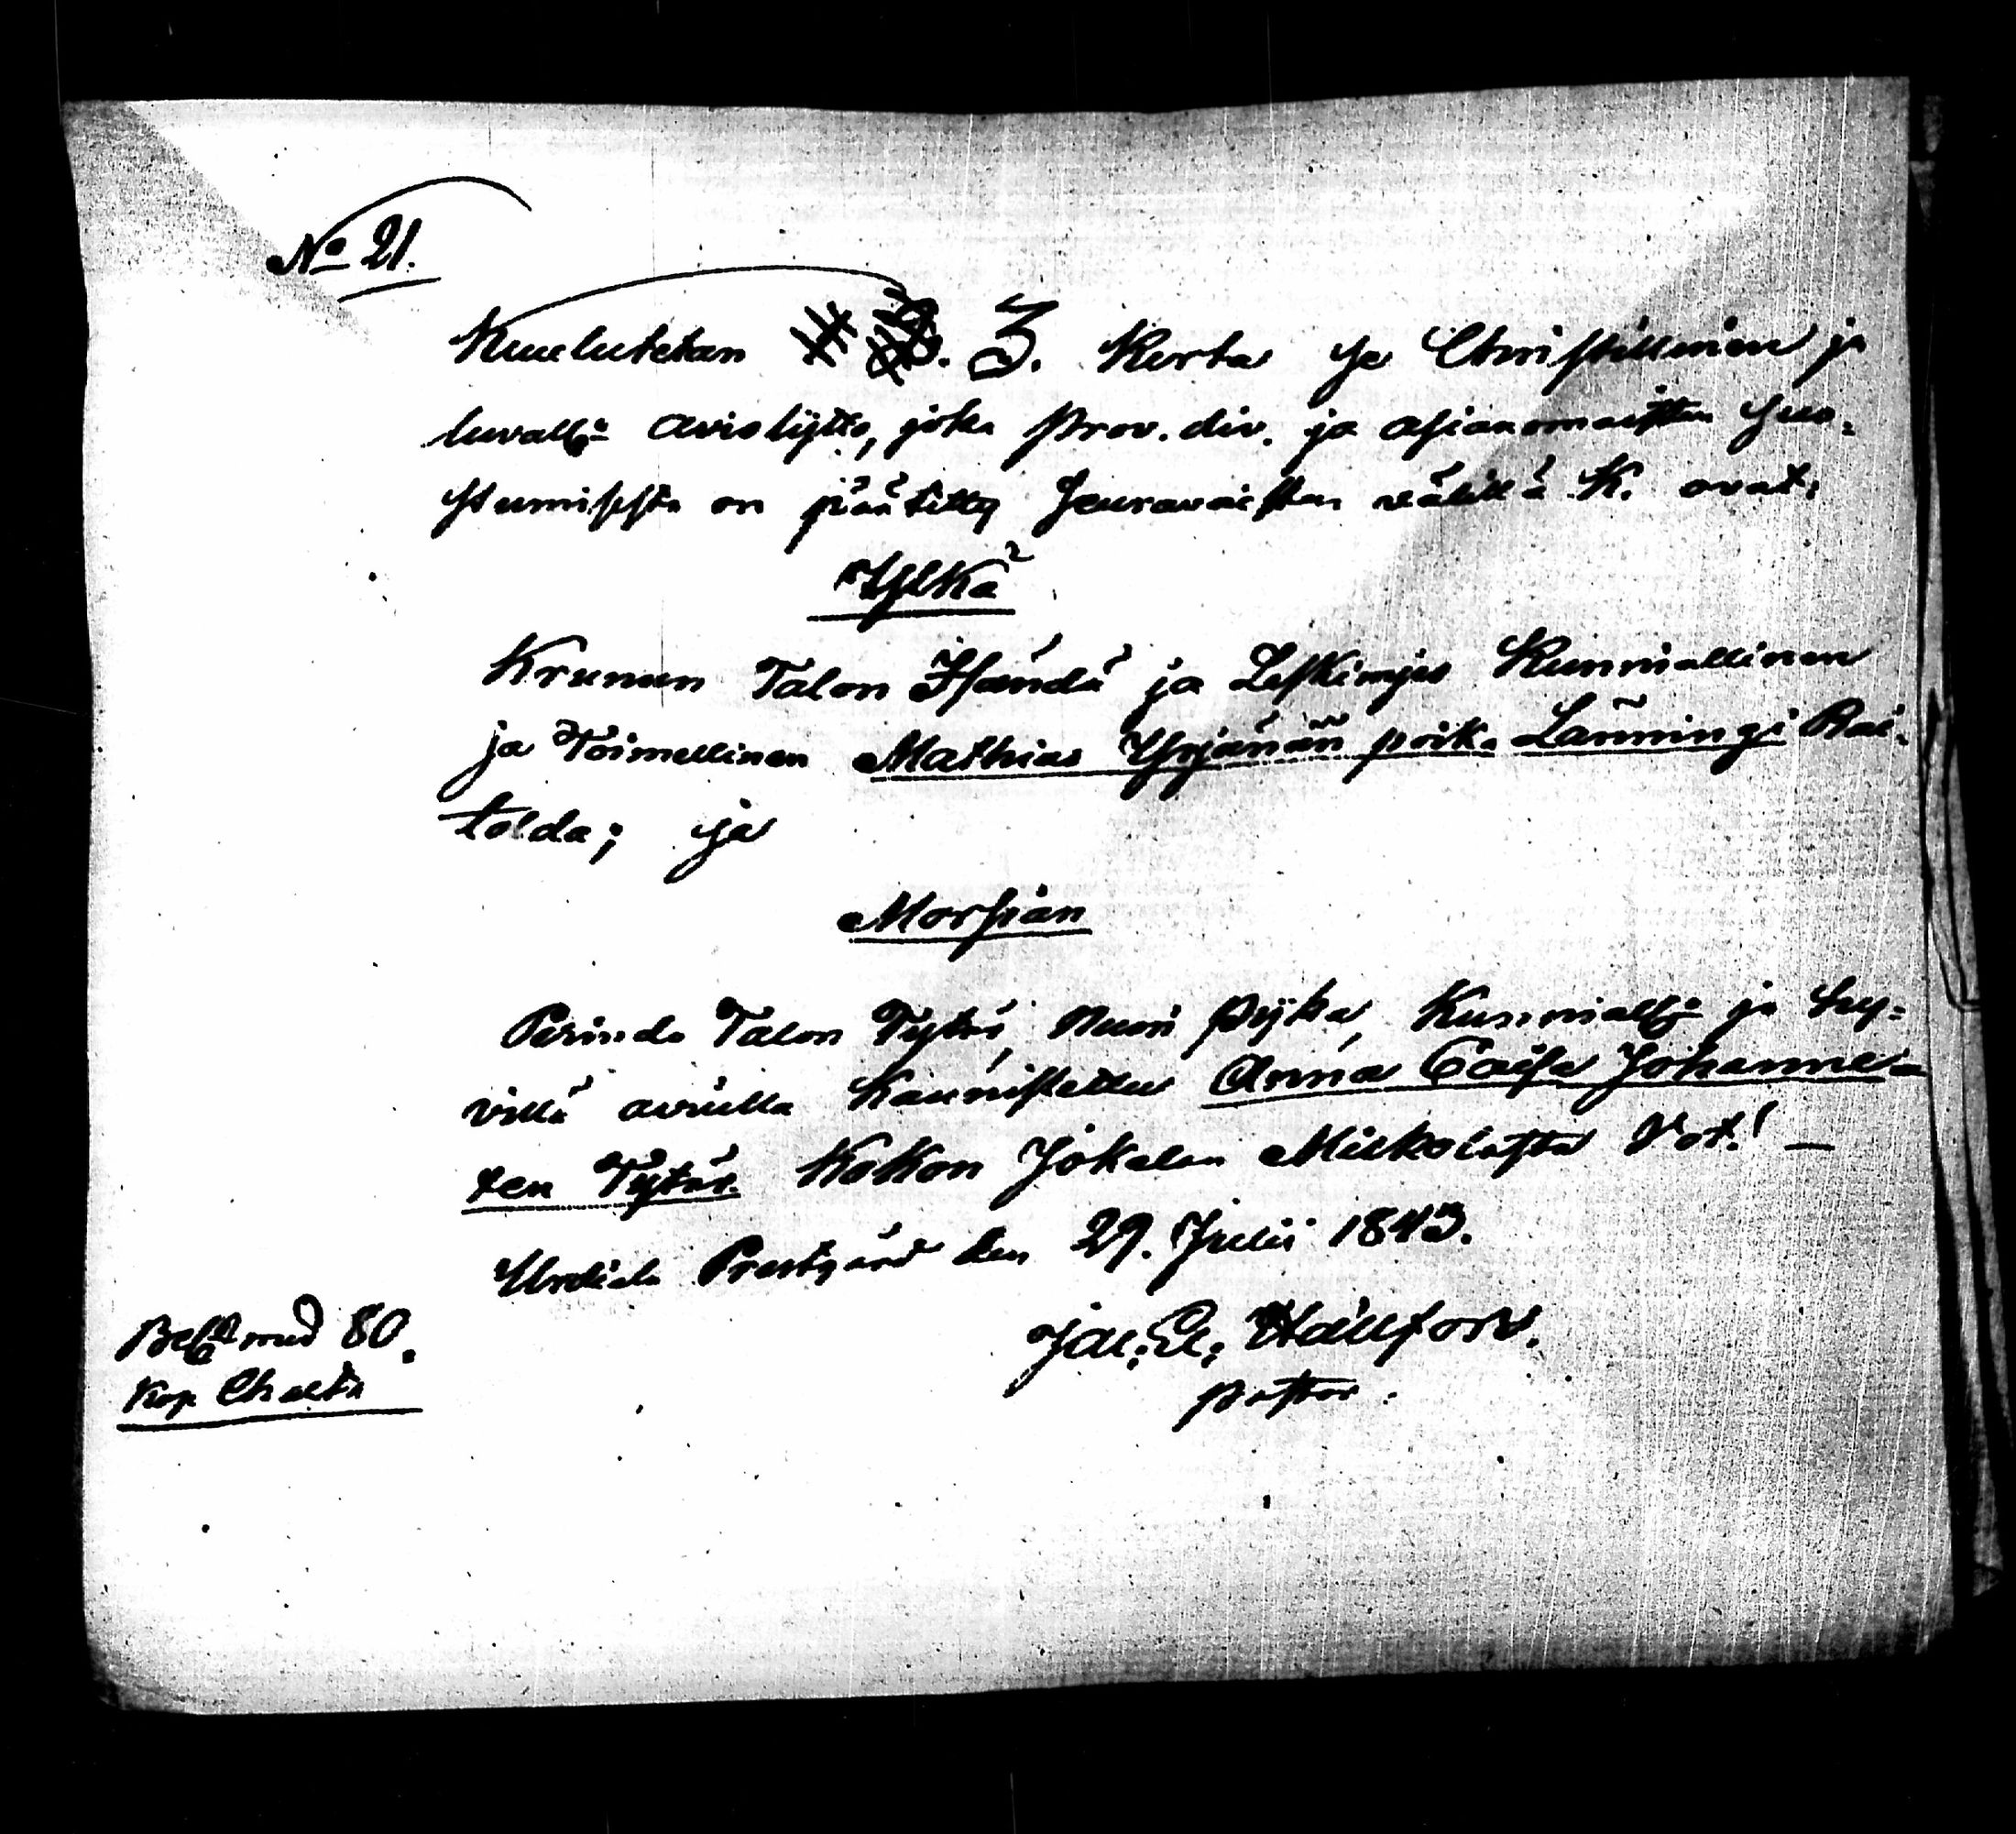 No 21.
Kuulutetan 3. Kerta se Christillinen ja
luvallj: avioliytto, joka prov. div. ja asianomaisten suo=
stumisesta on päätetty seuravaisten välillä K. ovat:
Yljkä
Krunun Talon Isändä ja Leskimjes Kunniallinen
ja Toimellinen Mathias Yrjänän poika Länningi Rai=
tolda; ja
Morsian
Perindo Talon Tytär, nuori pijka, Kunniallj: ja hy=
villä avuilla Kaunistettu Anna Caisa Johannex=
xen Tytär Kokon Jokelan Mickolasta Vot! —
Urdiala Prestgård den 29. Julii 1843.
Jac: El: Hällfors.
pastor.
Bel. med 80.
Kop. Charta